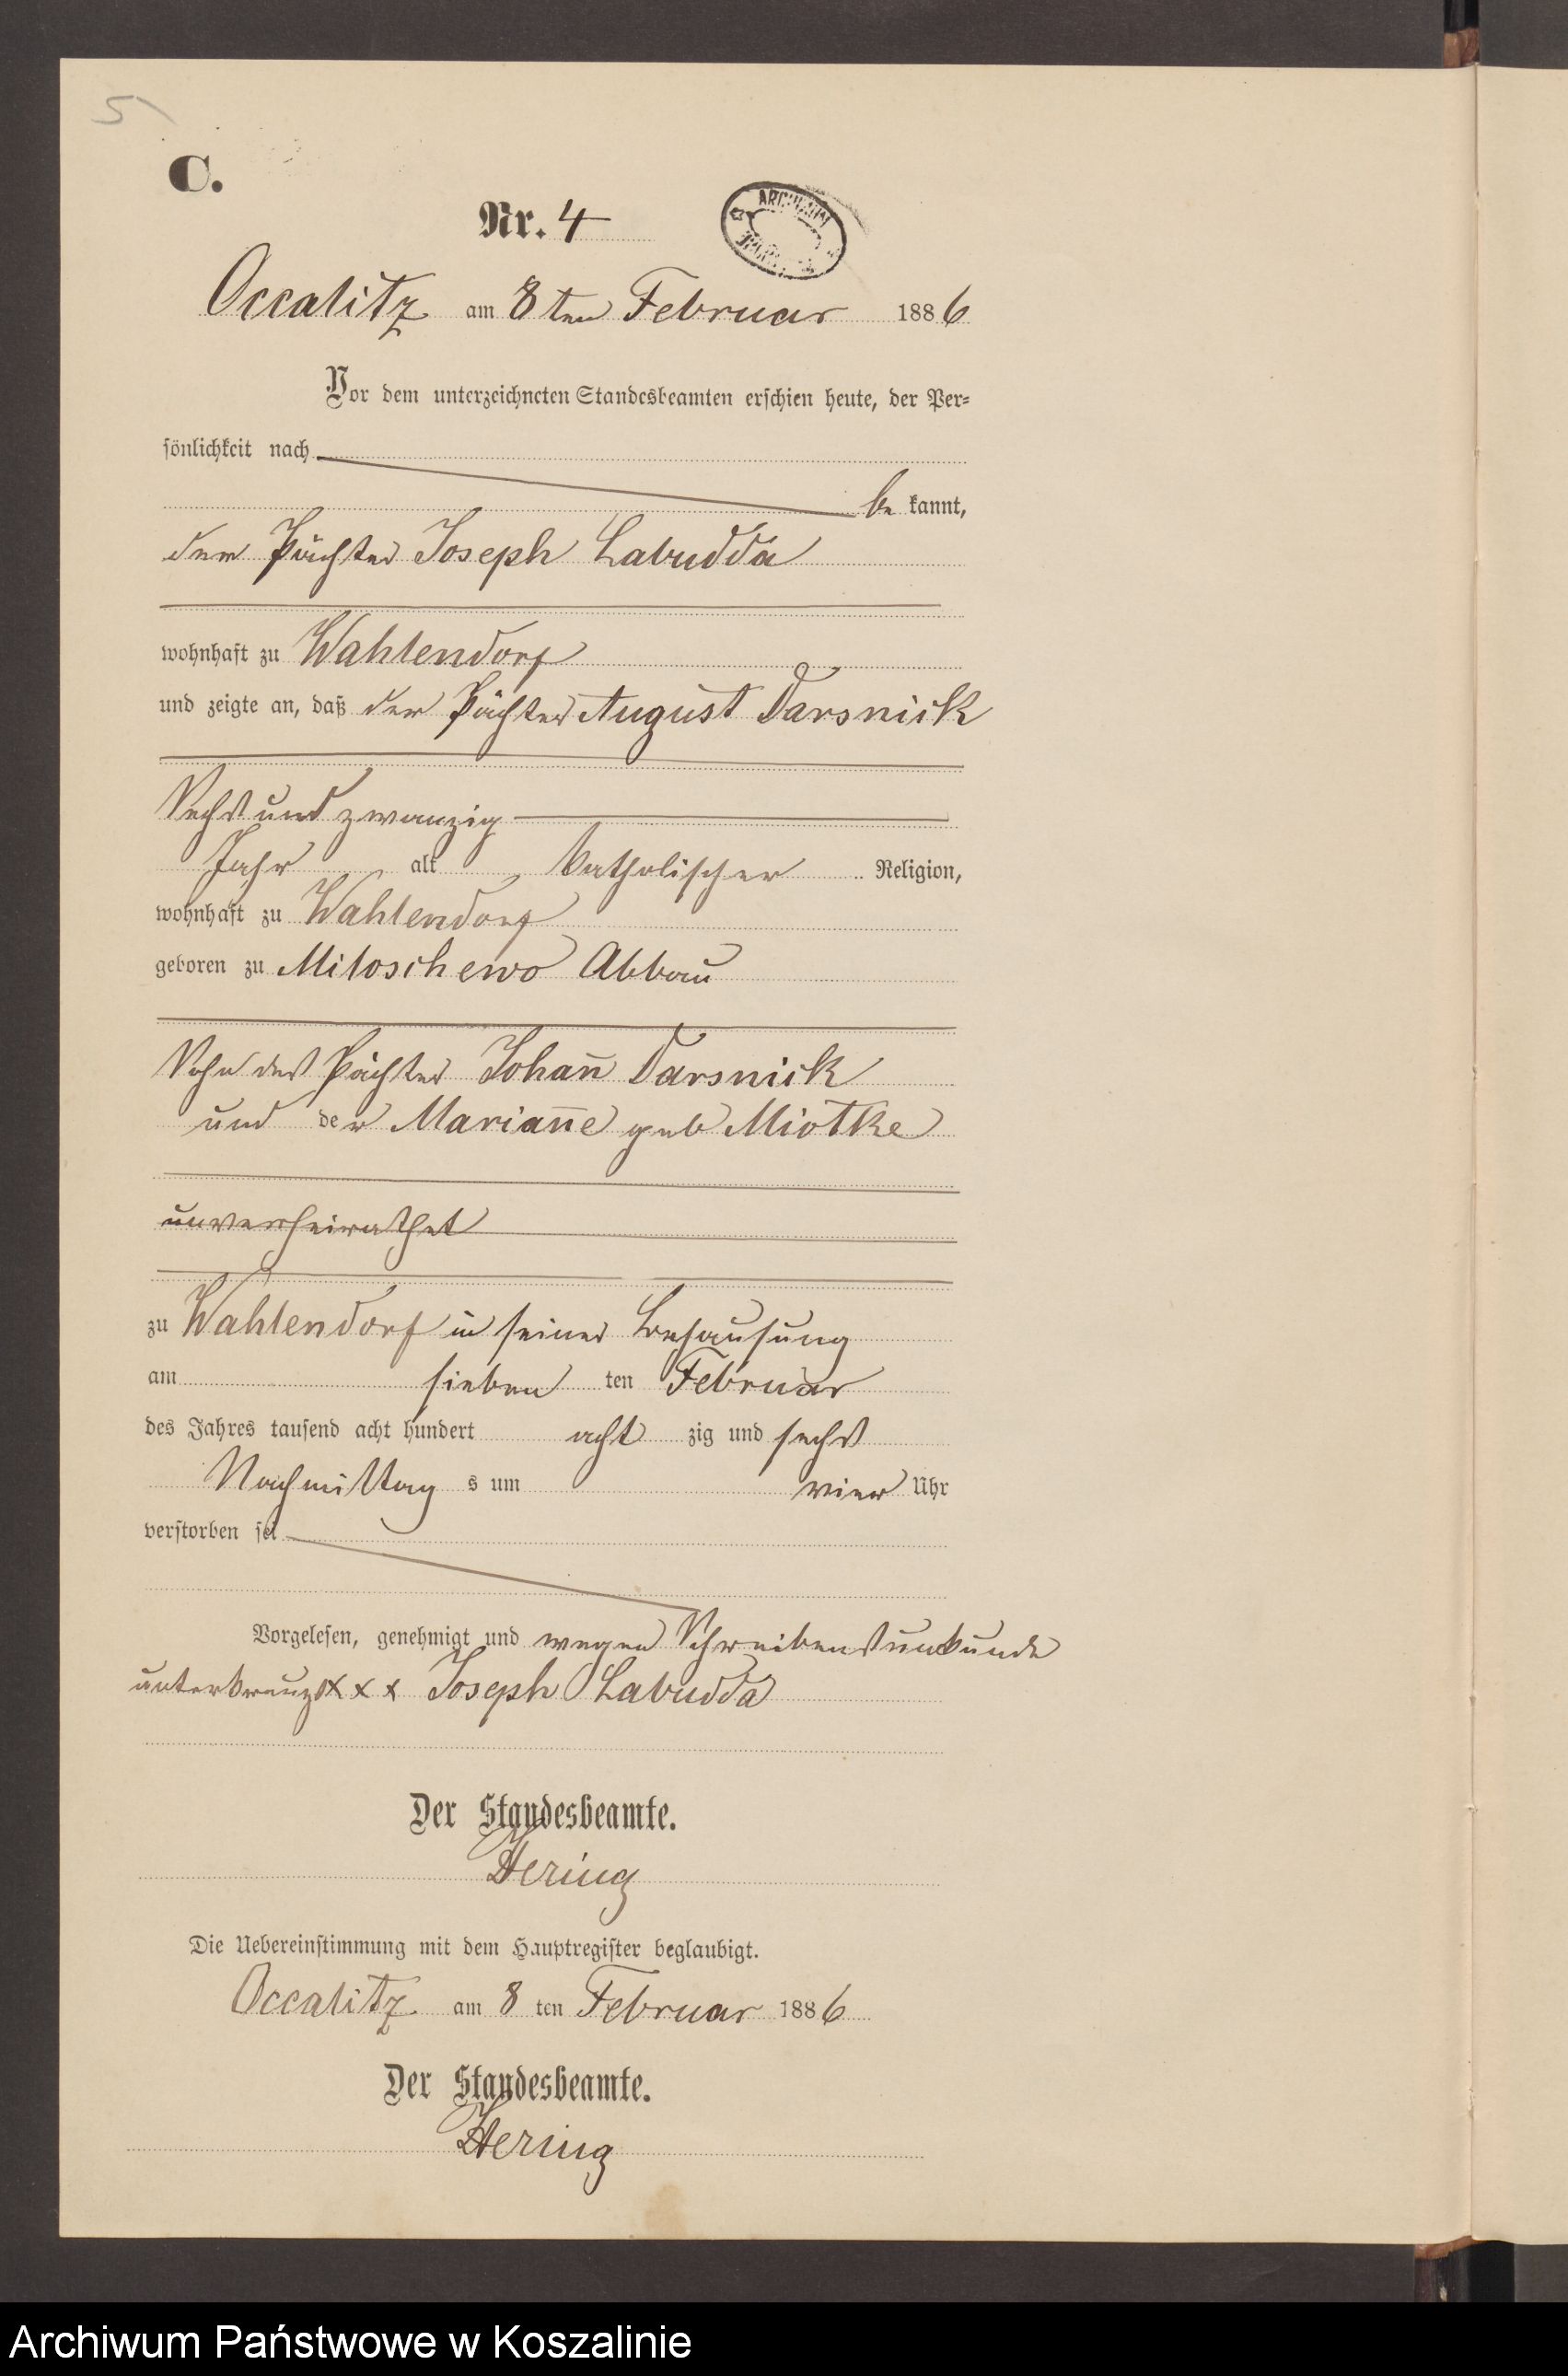 5
C.
Nr. 4
ARCHIWUM
Occalitz am 8ten Februar 1886
Vor dem unterzeichneten Standesbeamten erschien heute, der Per-
sönlichkeit nach
be kannt,
der Pächter Joseph Labudda
wohnhaft zu Wahlendorf
und zeigte an, daß der Pächter August Darsnick
Sechs und zwanzig
Jahr alt katholischer Religion,
wohnhaft zu Wahlendorf
geboren zu Miloschewo Abbau
Sohn des Pächter Johan̄ Darsnick
und der Marian̄e geb Miotke
unverheirathet
zu Wahlendorf in seiner Behausung
am sieben ten Februar
des Jahres tausend acht hundert acht zig und sechs
Nachmittag s um vier Uhr
verstorben sei
Vorgelesen, genehmigt und wegen Schreibensunkunde
unterkreuzt x x x Joseph Labudda
Der Standesbeamte.
Hering
Die Uebereinstimmung mit dem Hauptregister beglaubigt.
Occalitz am 8 ten Februar 1886
Der Standesbeamte.
Hering
Archiwum Państwowe w Koszalinie